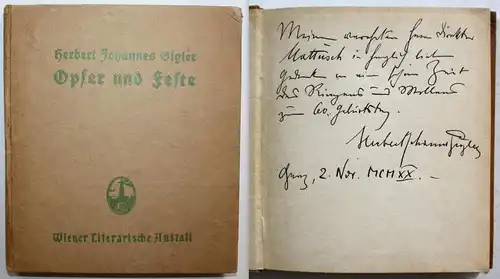 Herbert Johannes Gigler
Opfer und Feste
Wiener Literarische Anstalt
Meinem verehrten Herrn Direktor
Mattusch in herzlich lieb
Gedenken an eine schöne Zeit
des Ringens und Wollens
zum 60. Geburtstag.
Herbert Johannes Gigler
Graz, 2. Nov. MCMXX. –